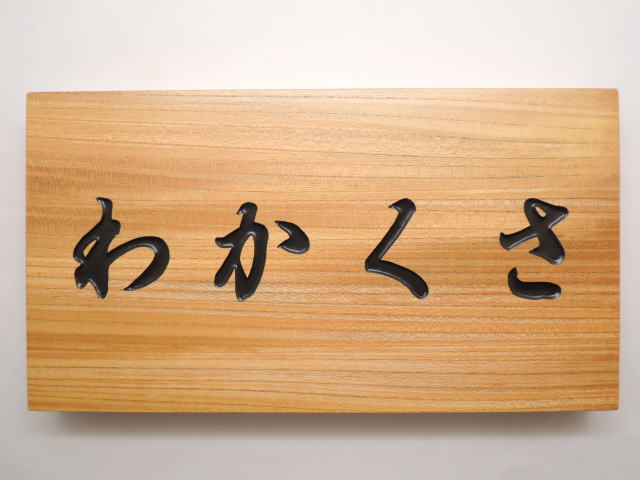 わかくさ